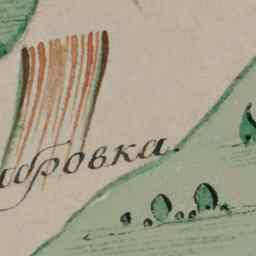 бровка.